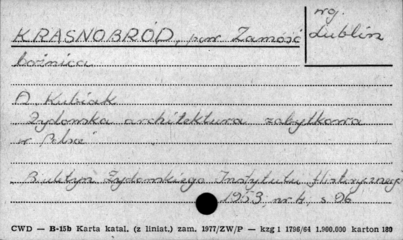 KRASNOBRÓD, pow. Zamość
woj. Lublin
bożnica
A. Kubiak
Żydowska architektura zabytkowa
w Polsce
Biuletyn Żydowskiego Instytutu Historycznego
1953, nr 4, s. 96
CWD — B-15b Karta katal. (z liniat.) zam. 1977/ZW/P — kzg 1 1796/64 1.900.000 karton 180